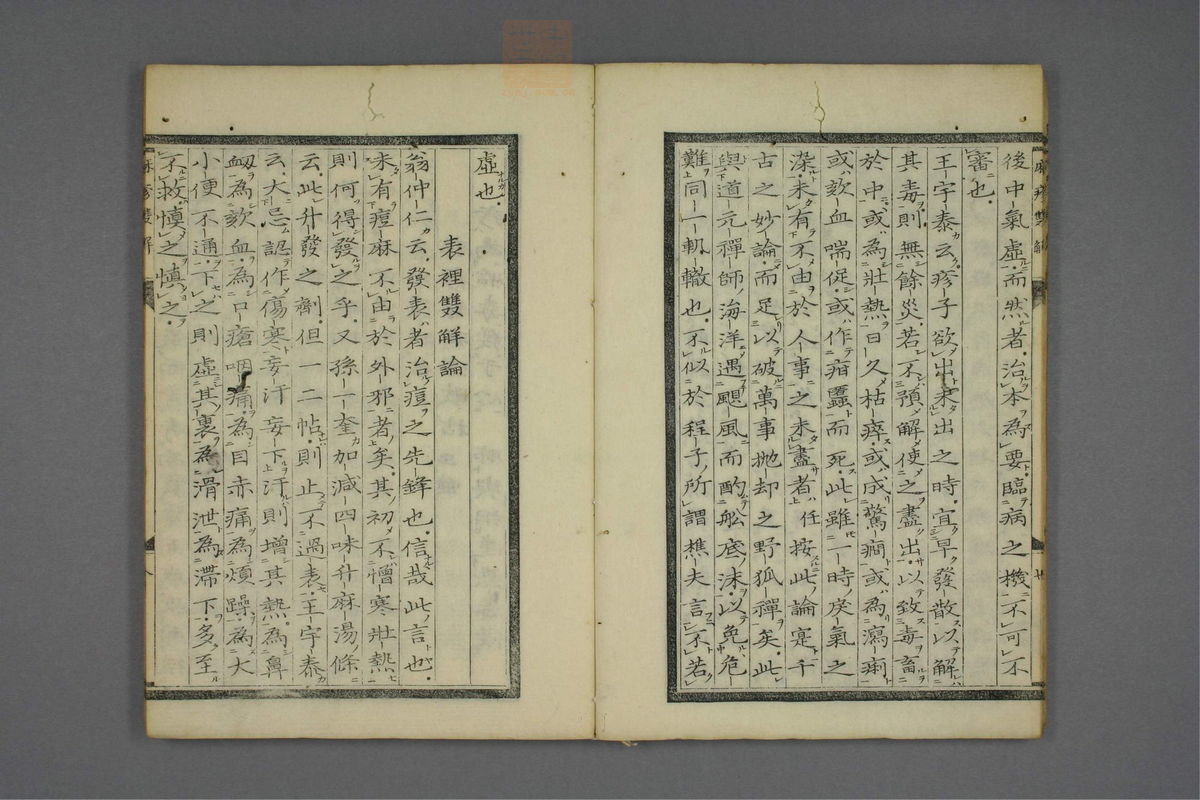 後中氣虛而然者治本為要臨病之機不可不
審也
王宇泰云疹子欲出未出之時宜早發散以解
其毒則無餘災若不預解使之盡出以致毒畜
於中或為壯熱日久枯瘁或成驚癇或為瀉痢
或欬血喘促或作疳䘌而死此雖一時戾氣之
染未有不由於人事之未盡者任按此論寔千
古之妙論而足以破萬事抛却之野狐禪矣此
與道元禪師海洋遇颶風而酌舩底沫以免危
難同一軌轍也不似於程子所謂樵夫言不若
虛也
表裡雙解論
翁仲仁云發表者治痘之先鋒也信哉此言也
未有痘麻不由於外邪者矣其初不憎寒壯熱
則何得發之乎又孫一奎加減四味升麻湯條
云此升發之劑但一二帖則止不過表王宇泰
云大忌認作傷寒妄汗妄下汗則增其熱為鼻
衂為欬血為口瘡咽痛為目赤痛為煩躁為大
小便不通下之則虛其裏為滑泄為滯下多至
不救慎之慎之